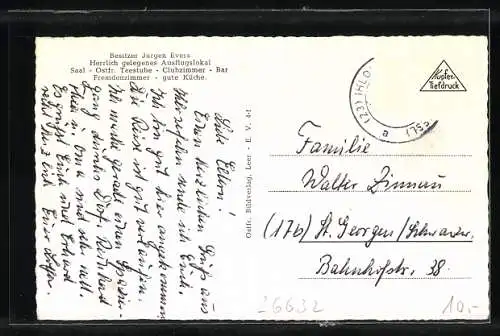 Besitzer Jürgen Evers
Herrlich gelegenes Ausflugslokal
Saal - Ostfr. Teestube - Clubzimmer - Bar
Fremdenzimmer - gute Küche.
Liebe Eltern!
Einen herzlichen Gruß aus
sende ich Euch.
Ich bin gut hier angekommen
Die Reise ist gut verlaufen.
Ich mache gerade einen Spazier-
gang durchs Dorf. Reinhard
Klein u. Oma sind sehr nett.
Es grüßt Euch und Erhard
Euer
Ostfr. Bildverlag, Leer - E. V. 64
(23) IHLO
a
Kupfer-
Tiefdruck
Familie
Walter Zinnau
(17b) St. Georgen/Schwarzw.
Bahnhofstr. 38.
26632
10.-